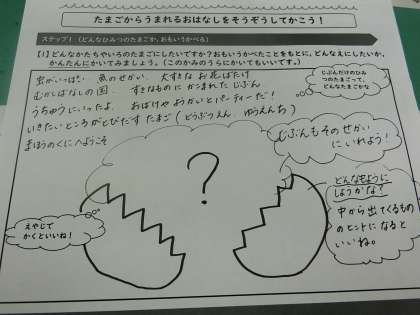 たまごからうまれるおはなしをそうぞうしてかこう！
ステップ1 （どんなひみつのたまごか、おもいうかべる）
【1】どんなかたちやいろのたまごにしたいですか？おもいうかべたことをもとに、どんなえにしたいか、
かんたんにかいてみましょう。（このかみのうらにかいてもいいです。）
虫がいっぱい 魚のせかい 大すきな お花ばたけ
むかしばなしの国 すきなものに かこまれた じぶん
うちゅうにいったよ おばけや ようかいとパーティーだ！
いきたいところがとびだす たまご（どうぶつえん、ゆうえんち）
まほうのくにへようこそ
じぶんだけのひみ
つのたまごって、
どんなたまごかな
じぶんもそのせかい
にいれよう！
?
どんなもように
しようかな？
中から出てくるもの
のヒントになると
いいね。
えやじで
かくといいね！